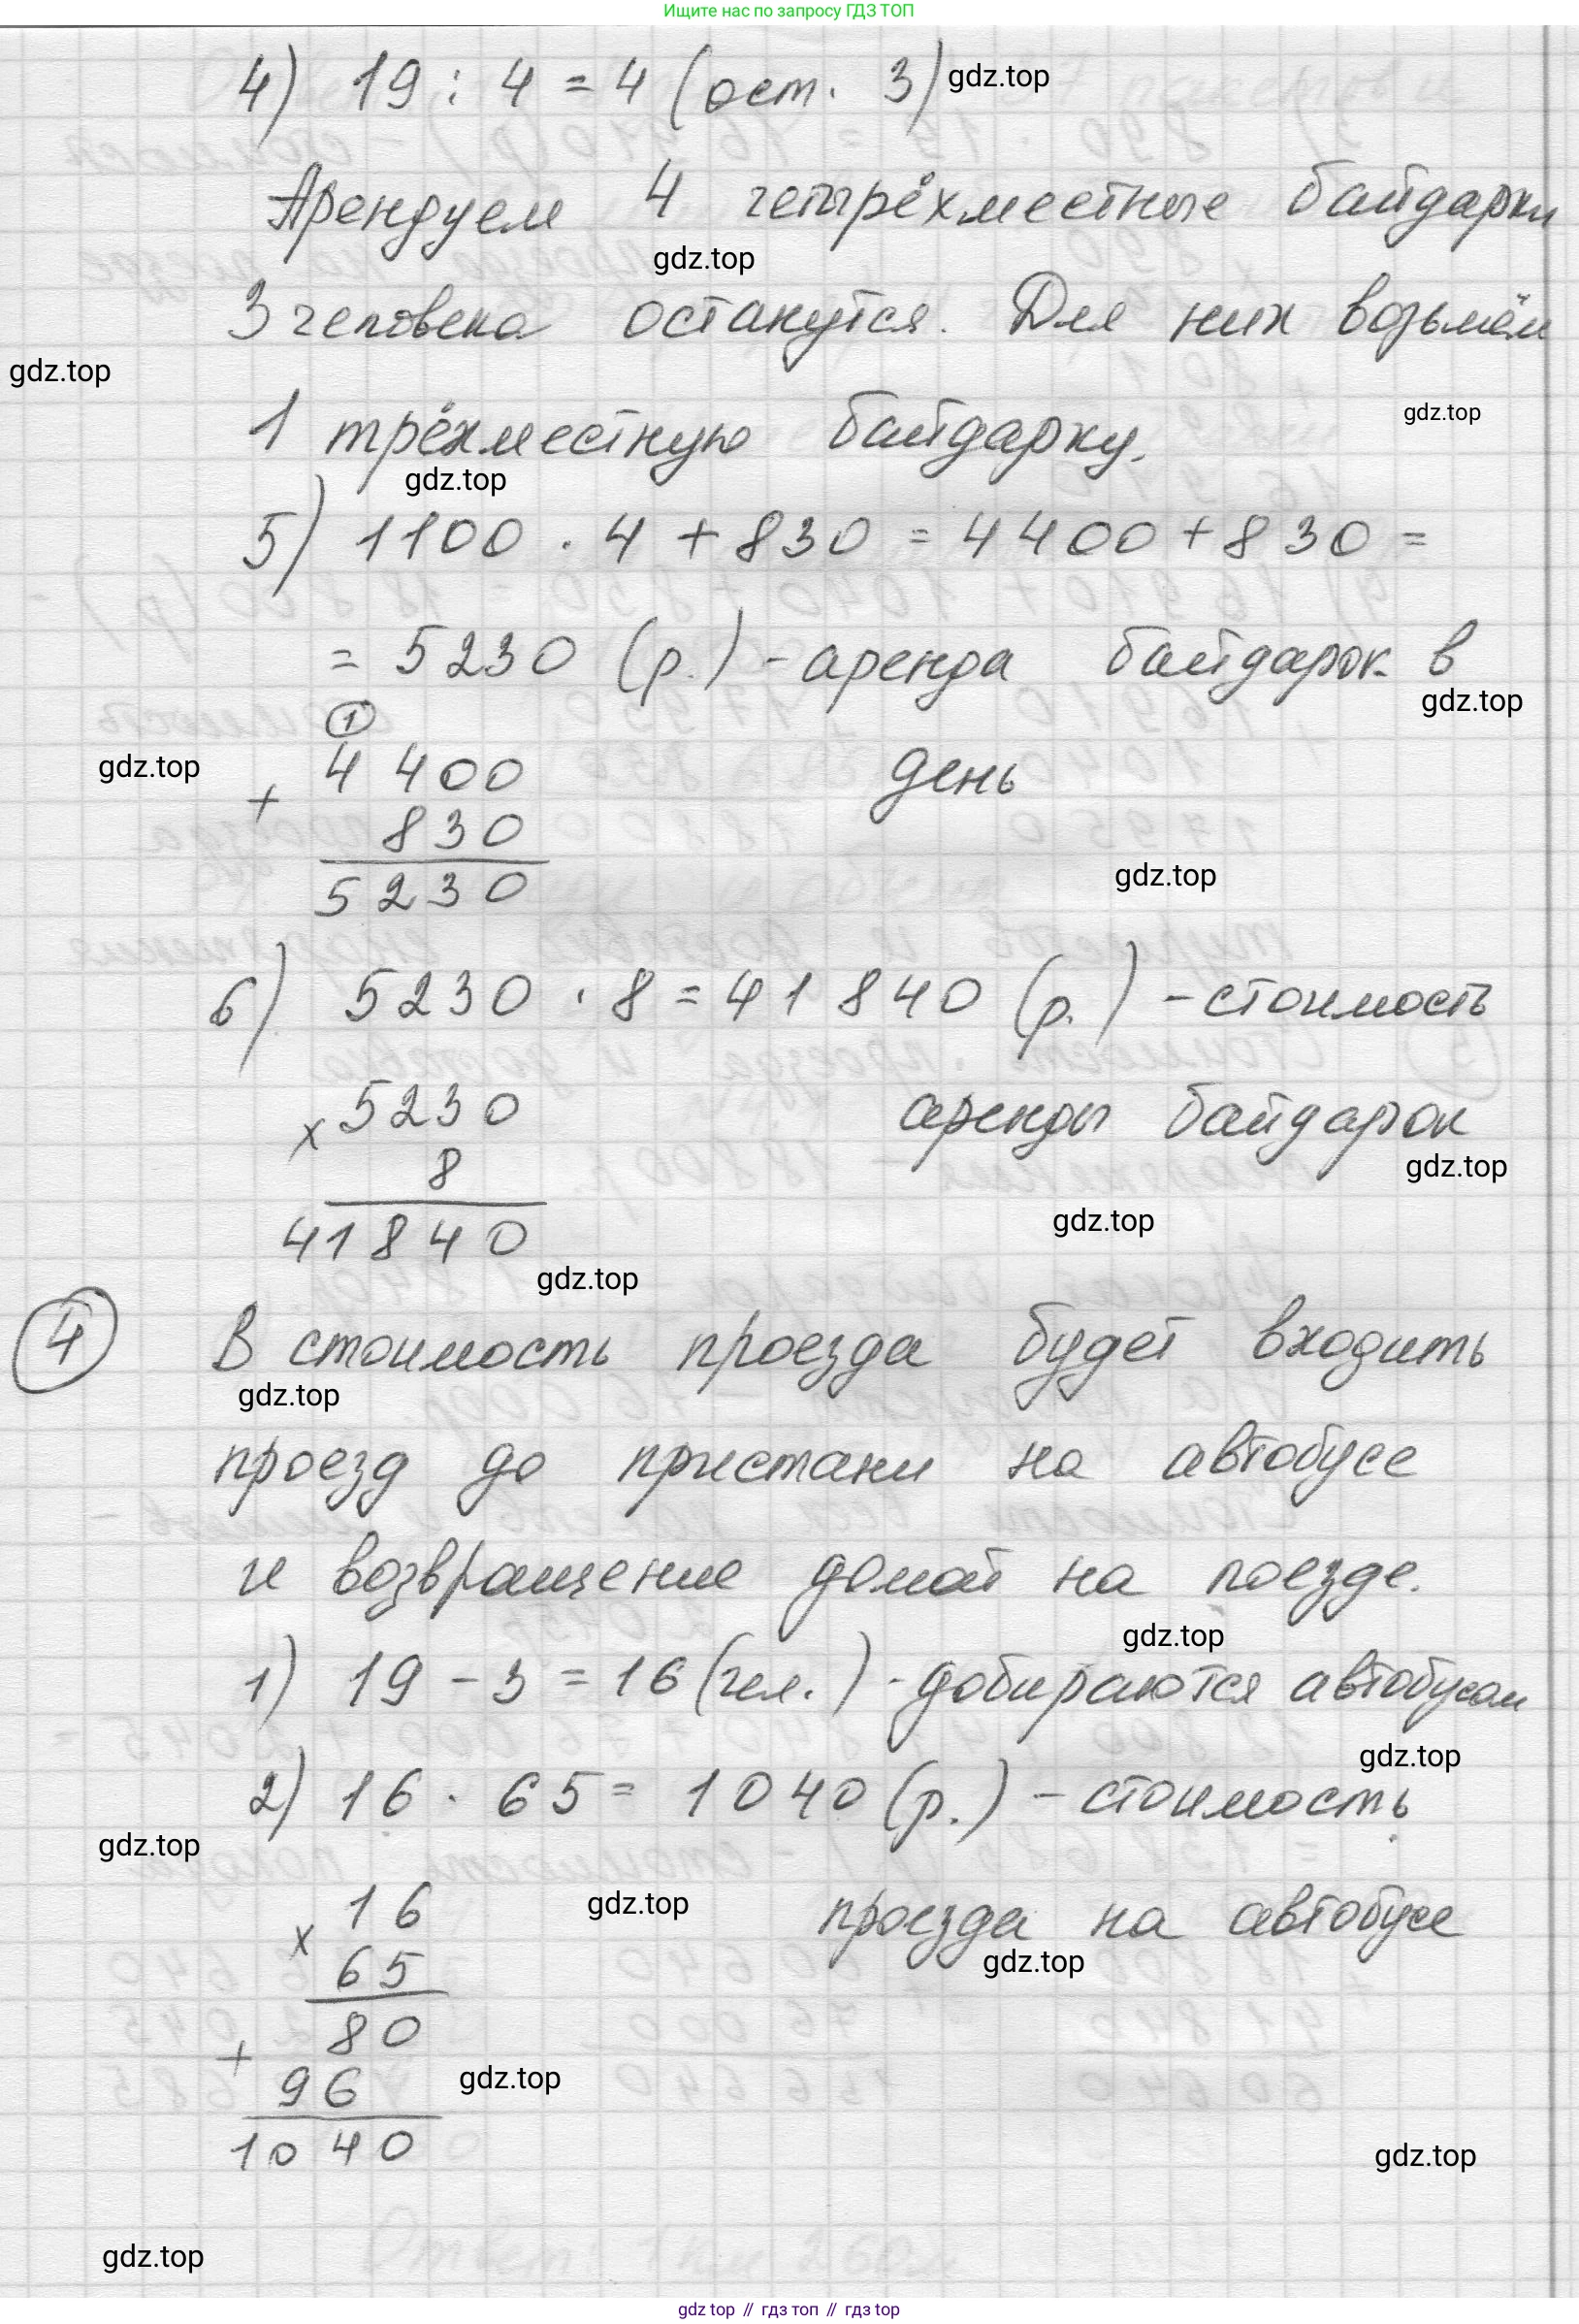 Ищите нас по запросу ГДЗ ТОП
4) 19 : 4 = 4 (ост. 3) gdz.top
Арендуем 4 четырёхместные байдарки
gdz.top
3 человека останутся. Для них возьмём
gdz.top
1 трёхместную байдарку.
gdz.top
gdz.top
5) 1100 · 4 + 830 = 4400 + 830 =
= 5230 (р.) - аренда байдарок в
gdz.top
день
1
gdz.top
+ 4400
830
5230
gdz.top
6) 5230 · 8 = 41 840 (р.) - стоимость
аренды байдарок
gdz.top
x 5230
8
41840
gdz.top
gdz.top
4 В стоимость проезда будет входить
gdz.top
проезд до пристани на автобусе
и возвращение домой на поезде.
gdz.top
1) 19 - 3 = 16 (чел.) - добираются автобусом
gdz.top
2) 16 · 65 = 1040 (р.) - стоимость
gdz.top
проезда на автобусе
gdz.top
gdz.top
x 16
65
80
+ 96
1040
gdz.top
gdz.top
gdz.top
gdz top // гдз топ // гдз top